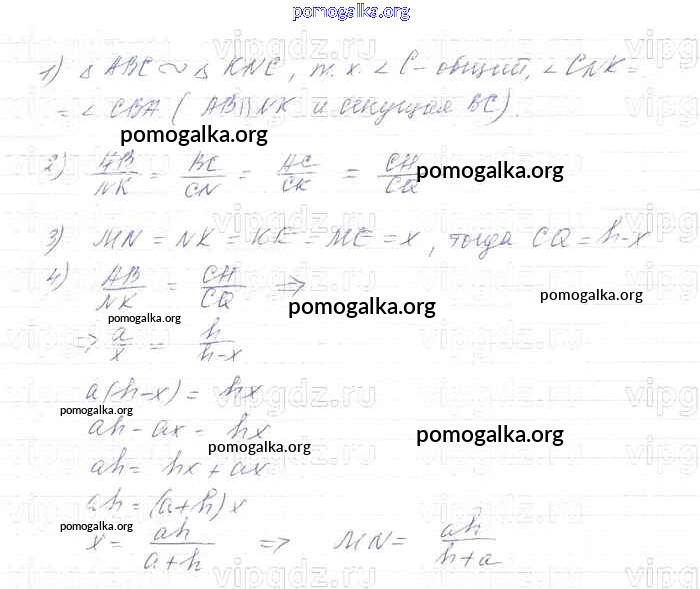 pomogalka.org
1) Δ ABC ~ Δ KNC, т. к. ∠ C - общий, ∠ CNK =
= ∠ CBA ( AB || NK и секущая BC).
pomogalka.org
2) AB/NK = BC/CN = AC/CK = CH/CQ
pomogalka.org
3) MN = NK = KE = ME = x, тогда CQ = h-x
4) AB/NK = CH/CQ ⇒
pomogalka.org
pomogalka.org
pomogalka.org
⇒ a/x = h/h-x
a(h-x) = hx
pomogalka.org
ah - ax = hx
pomogalka.org
pomogalka.org
ah = hx + ax
ah = (a+h)x
pomogalka.org
pomogalka.org
x = ah/a+h ⇒ MN = ah/h+a
vipgdz.ru